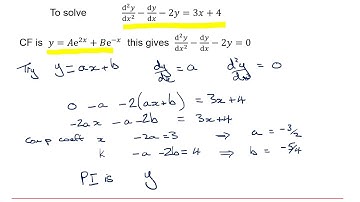 To solve d²y/dx² − dy/dx − 2y = 3x + 4
CF is y = Ae²ˣ + Be⁻ˣ this gives d²y/dx² − dy/dx − 2y = 0
Try y = ax + b dy/dx = a d²y/dx² = 0
0 − a − 2(ax + b) = 3x + 4
−2ax − a − 2b = 3x + 4
Comp coeff x −2a = 3 ⇒ a = −3/2
k −a − 2b = 4 ⇒ b = −5/4
PI is y